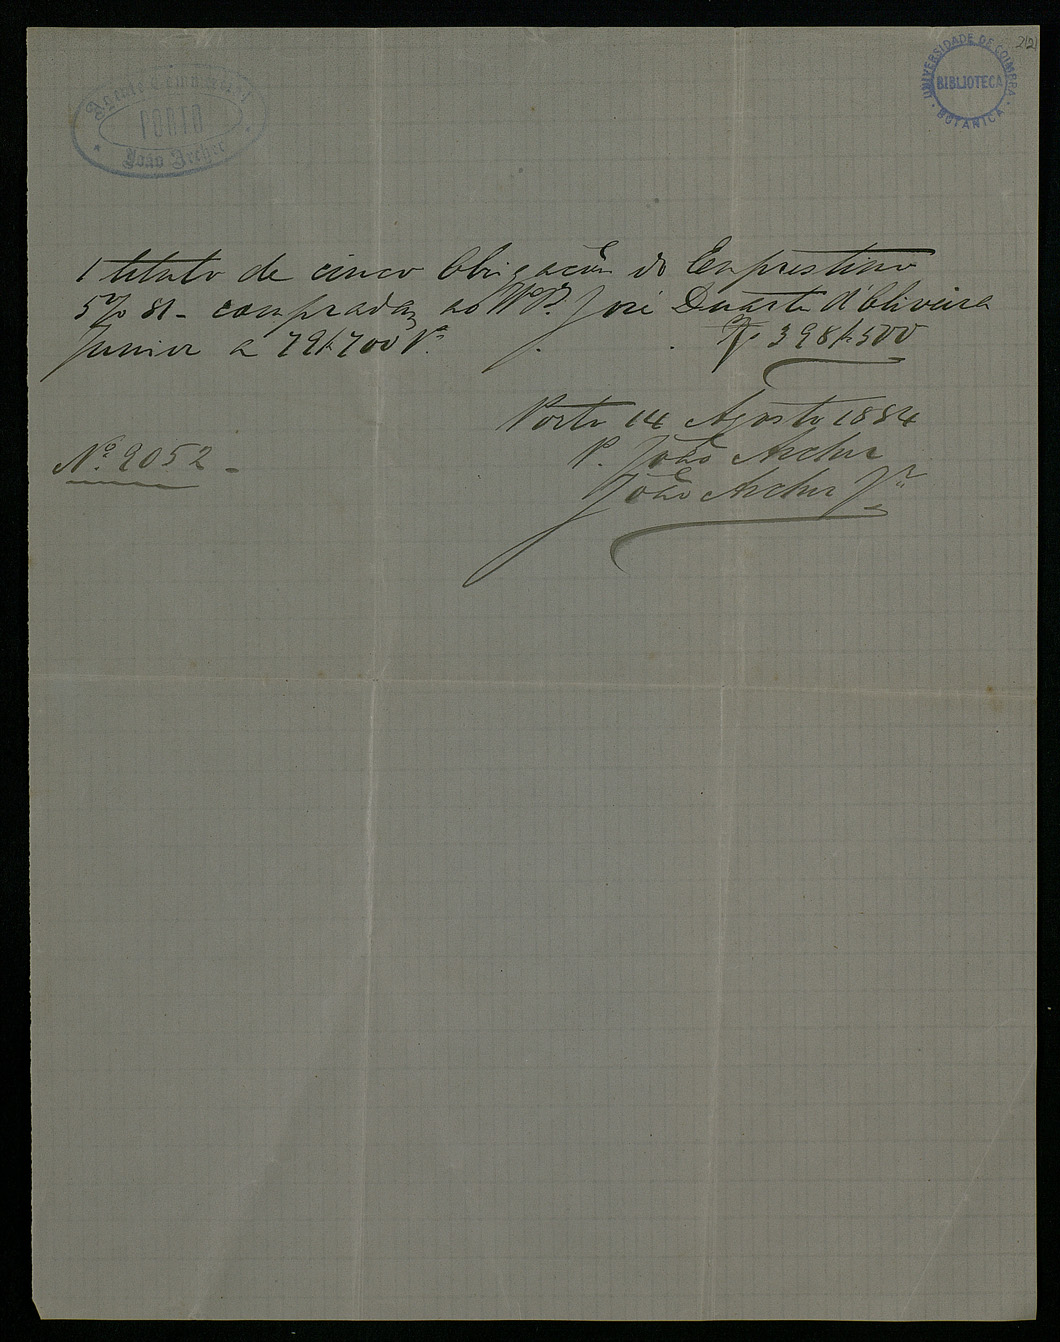 212
UNIVERSIDADE DE COIMBRA
BIBLIOTECA
BOTANICA
Agente Commercial
PORTO
João Archer
1 titulo de cinco Obrigação do Emprestimo
5% 81 - compradas ao José Duarte d'Oliveira
Junior a 79$700 Rs 398$500
Porto 14 Agosto 1884
Nº 2052 -
P. João Archer
João Archer Jor